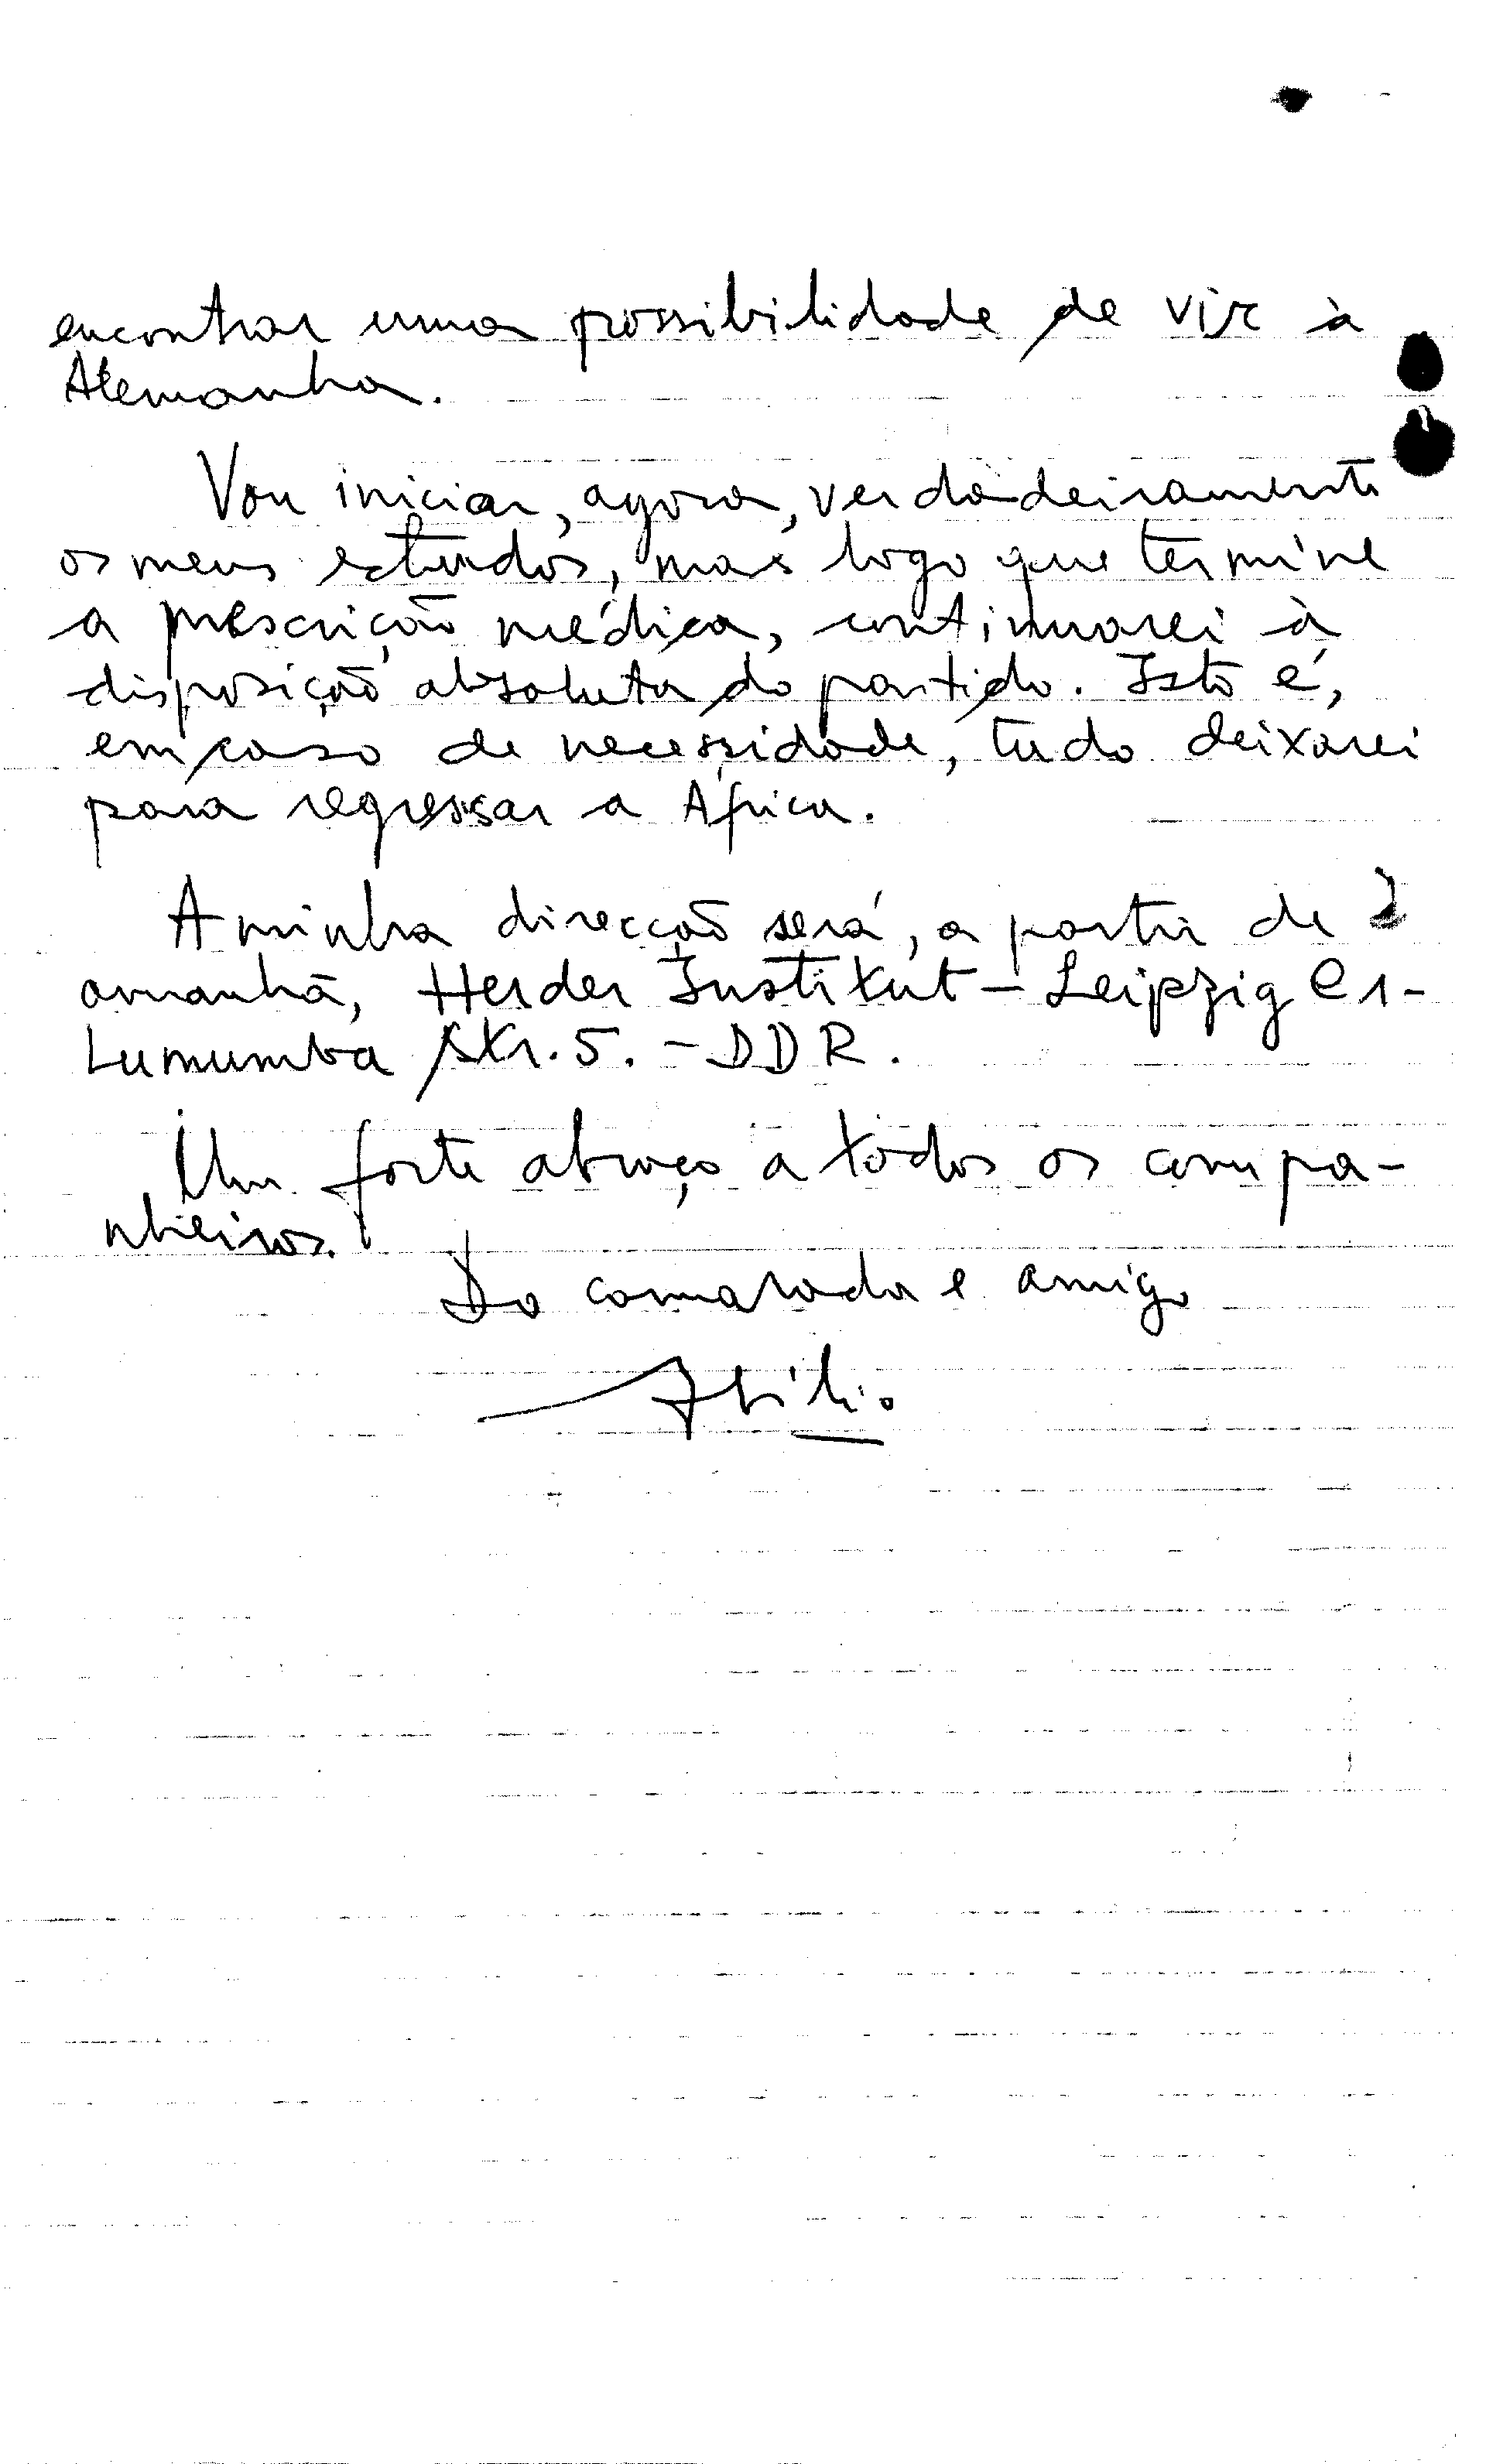 encontrar uma possibilidade de vir à
Alemanha.
Vou iniciar, agora, verdadeiramente
os meus estudos, mas logo que termine
a prescrição médica, continuarei à
disposição absoluta do partido. Isto é,
em caso de necessidade, tudo deixarei
para regressar a África.
A minha direcção será, a partir de
amanhã, Herder Institut - Leipzig C1-
Lumumba Str. 5. - DDR.
Um forte abraço a todos os compa-
nheiros.
Do camarada e amigo